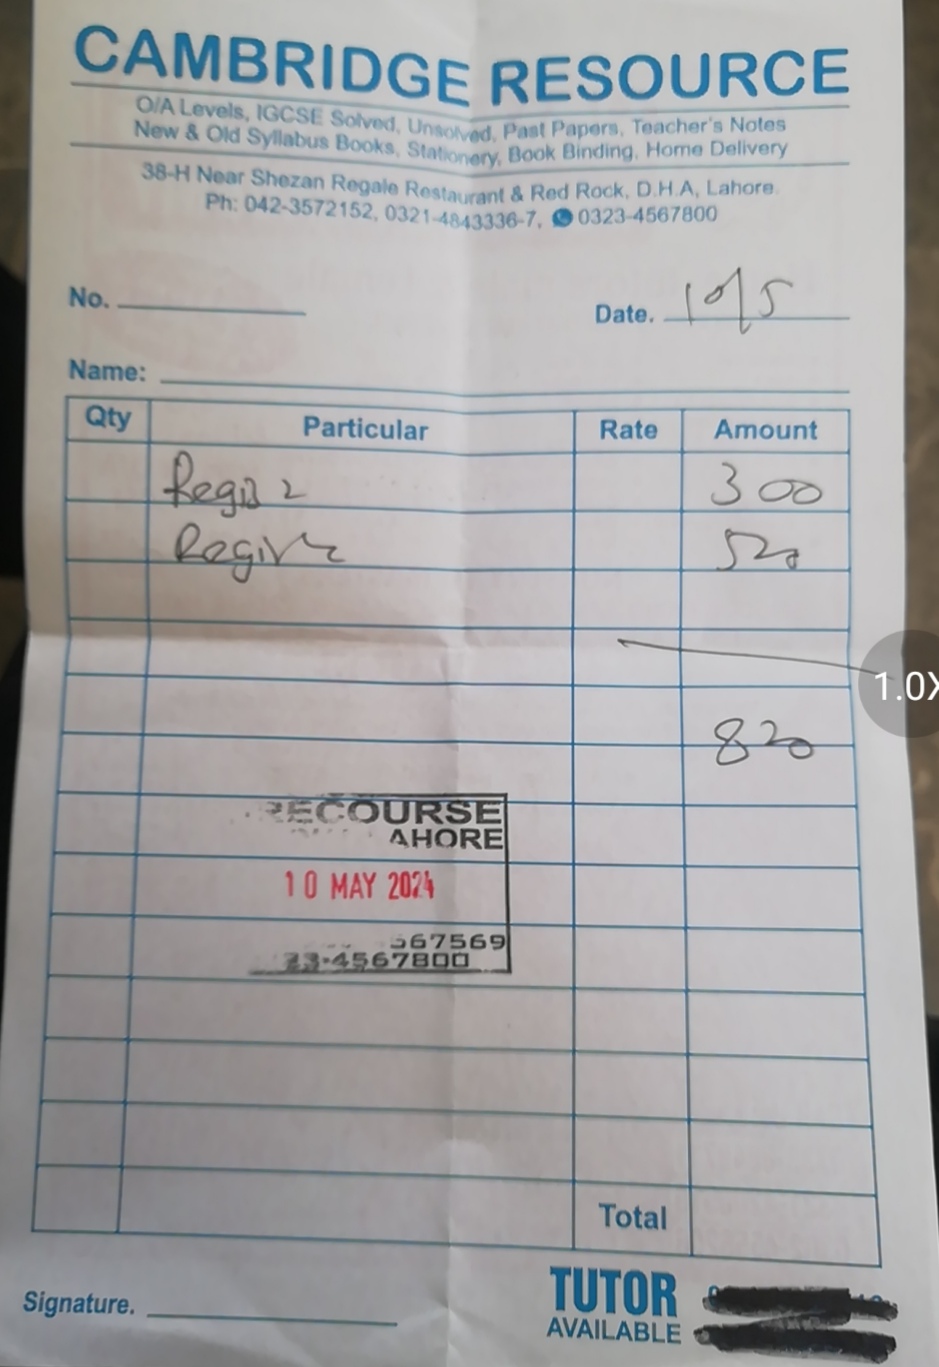 CAMBRIDGE RESOURCE
O/A Levels, IGCSE Solved, Unsolved, Past Papers, Teacher's Notes
New & Old Syllabus Books, Stationery, Book Binding, Home Delivery
38-H Near Shezan Regale Restaurant & Red Rock, D.H.A, Lahore.
Ph: 042-3572152, 0321-4843336-7, 0323-4567800
No.
Date. 10/5
Name:
Qty Particular Rate Amount
300
520
1.0X
820
RECOURSE
AHORE
10 MAY 2024
567569
23-4567800
Total
Signature.
TUTOR
AVAILABLE